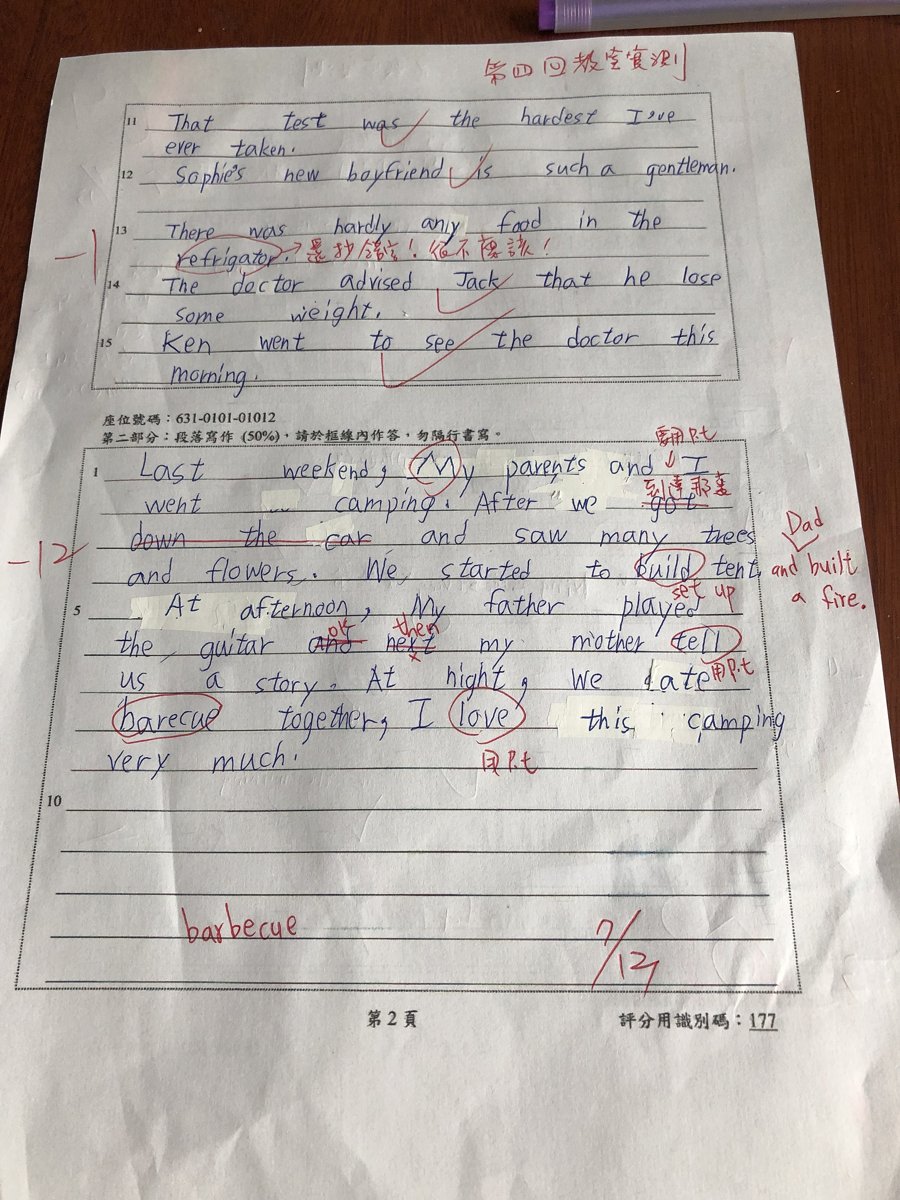 第四回教室實測
11 That test was the hardest I've
ever taken.
12 Sophie's new boyfriend is such a gentleman.
13 There was hardly any food in the
-1 refrigator. → 還抄錯字！很不應該！
14 The doctor advised Jack that he lose
some weight.
15 Ken went to see the doctor this
morning.
座位號碼：631-0101-01012
第二部分：段落寫作 (50%)，請於框線內作答，勿隔行書寫。
要用P.t
1 Last weekend, My parents and I
到達那裏
went camping. After we got
Dad
-12 down the car and saw many trees
and flowers. We started to build tent, and built
set up a fire.
5 At afternoon, My father played
ok then
the guitar and next my mother tell
us a story. At night, we ate 用P.t
barecue together, I love this camping
very much. 用P.t
10
barbecue
7/12
第 2 頁 評分用識別碼：177